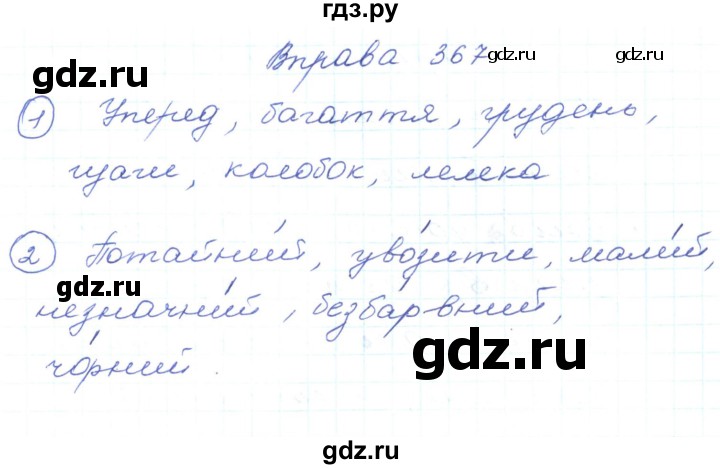 гдз.ру
Вправа 367
gdz.ru gdz.ru
gdz.ru
1 Уперед, багаття, грудень,
gdz.ru
щаги, колобок, лелека
2 Потайни́й, уво́зити, мали́й,
gdz.ru
незначни́й, безба́рвний,
gdz.ru
чо́рний.
gdz.ru
gdz.ru